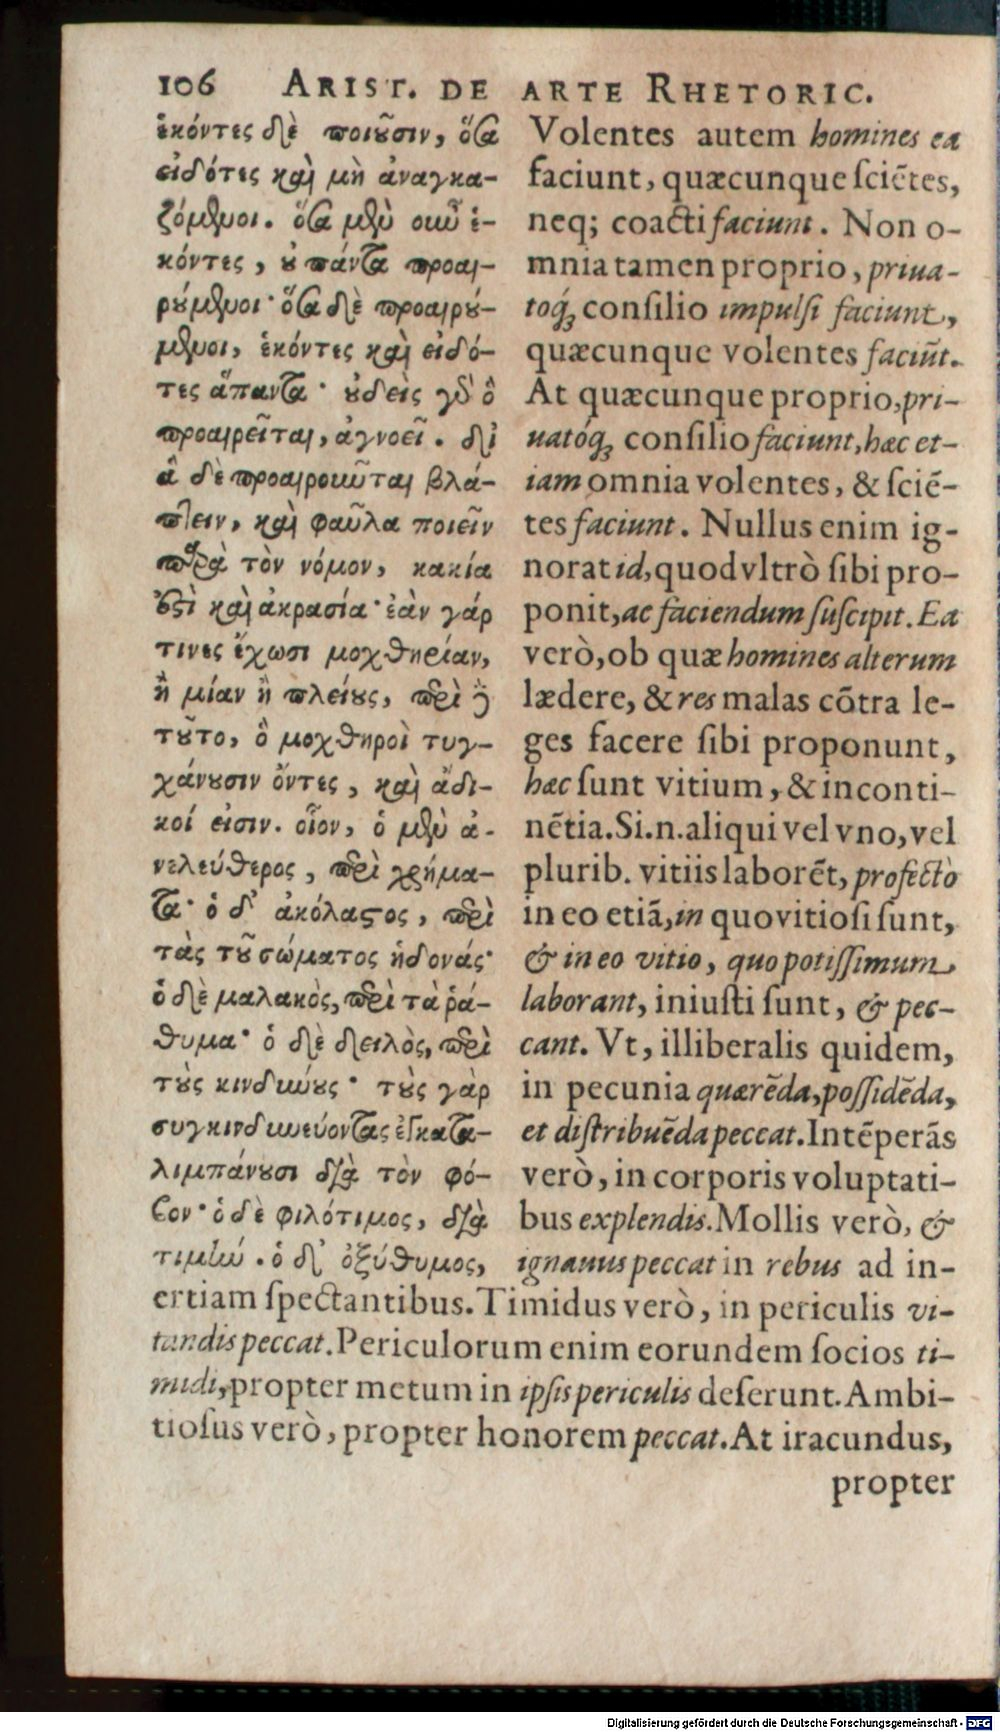 106 ARIST. DE ARTE RHETORIC.
ἑκόντες δὲ ποιοῦσιν, ὅσα
εἰδότες καὶ μὴ ἀναγκα-
ζόμενοι. ὅσα μὲν οὖν ἑ-
κόντες, οὐ πάντα προαι-
ρούμενοι· ὅσα δὲ προαιρού-
μενοι, ἑκόντες καὶ εἰδό-
τες ἅπαντα· οὐδεὶς γὰρ ὃ
προαιρεῖται, ἀγνοεῖ. δι
ἃ δὲ προαιροῦνται βλά-
πτειν, καὶ φαῦλα ποιεῖν
παρὰ τὸν νόμον, κακία
ἐστὶ καὶ ἀκρασία· ἐὰν γάρ
τινες ἔχωσι μοχθηρίαν,
ἢ μίαν ἢ πλείους, περὶ ὃ
τοῦτο, ὃ μοχθηροὶ τυγ-
χάνουσιν ὄντες, καὶ ἄδι-
κοί εἰσιν. οἷον, ὁ μὲν ἀ-
νελεύθερος, περὶ χρήμα-
τα· ὁ δ' ἀκόλαστος, περὶ
τὰς τοῦ σώματος ἡδονάς·
ὁ δὲ μαλακὸς, περὶ τὰ ῥά-
θυμα· ὁ δὲ δειλὸς, περὶ
τοὺς κινδύνους· τοὺς γὰρ
συγκινδυνεύοντας ἐγκατα-
λιμπάνουσι διὰ τὸν φό-
βον· ὁ δὲ φιλότιμος, διὰ
τιμήν. ὁ δ' ὀξύθυμος,
Volentes autem homines ea
faciunt, quæcunque sciẽtes,
neq; coacti faciunt. Non o-
mnia tamen proprio, priua-
toq́ꝫ consilio impulsi faciunt,
quæcunque volentes faciũt.
At quæcunque proprio, pri-
uatóqꝫ consilio faciunt, hæc et-
iam omnia volentes, & sciẽ-
tes faciunt. Nullus enim ig-
norat id, quod vltrò sibi pro-
ponit, ac faciendum suscipit. Ea
verò, ob quæ homines alterum
lædere, & res malas cõtra le-
ges facere sibi proponunt,
hæc sunt vitium, & inconti-
nẽtia. Si.n. aliqui vel vno, vel
plurib. vitiis laborẽt, profectò
in eo etiã, in quo vitiosi sunt,
& in eo vitio, quo potissimum
laborant, iniusti sunt, & pec-
cant. Vt, illiberalis quidem,
in pecunia quærẽda, possidẽda,
et distribuẽda peccat. Intẽperãs
verò, in corporis voluptati-
bus explendis. Mollis verò, &
ignauus peccat in rebus ad in-
ertiam spectantibus. Timidus verò, in periculis vi-
tandis peccat. Periculorum enim eorundem socios ti-
midi, propter metum in ipsis periculis deserunt. Ambi-
tiosus verò, propter honorem peccat. At iracundus,
propter
Digitalisierung gefördert durch die Deutsche Forschungsgemeinschaft - DFG